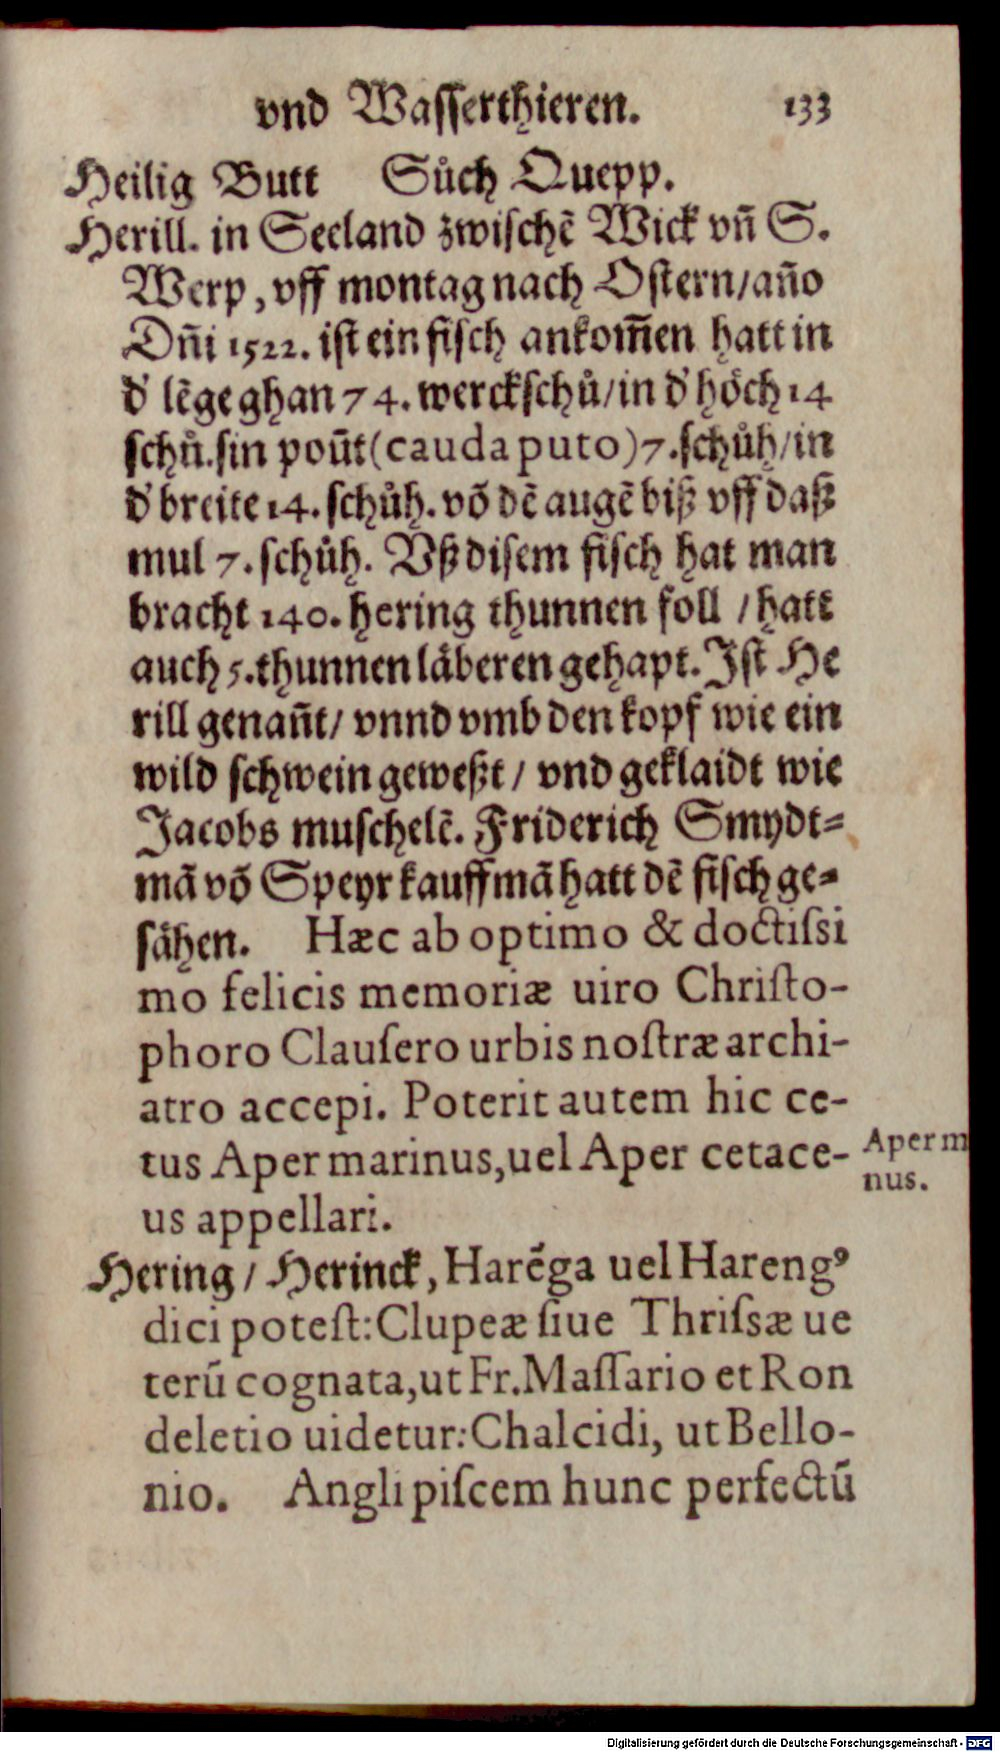 vnd Wasserthieren. 133
Heilig Butt Sůch Quepp.
Herill. in Seeland zwischẽ Wick vñ S.
Werp, vff montag nach Ostern/añо
Dñi 1522. ist ein fisch ankom̃en hatt in
d' lẽge ghan 74. werckschů/in d' hoͤch 14
schů. sin poũt (cauda puto) 7. schůh/in
d' breite 14. schůh. võ dẽ augẽ biß vff daß
mul 7. schůh. Vß disem fisch hat man
bracht 140. hering thunnen foll / hatt
auch 5. thunnen laͤberen gehapt. Jst He
rill genañt/ vnnd vmb den kopf wie ein
wild schwein geweßt / vnd geklaidt wie
Jacobs muschelẽ. Friderich Smydt⸗
mã võ Speyr kauffmã hatt dẽ fisch ge⸗
saͤhen. Hæc ab optimo & doctiſsi
mo felicis memoriæ uiro Chriſto-
phoro Clauſero urbis noſtræ archi-
atro accepi. Poterit autem hic ce-
tus Aper marinus, uel Aper cetace-
us appellari.
Aper m
nus.
Hering / Herinck, Harẽga uel Harengꝰ
dici poteſt: Clupeæ ſiue Thriſsæ ue
terũ cognata, ut Fr. Maſſario et Ron
deletio uidetur: Chalcidi, ut Bello-
nio. Angli piſcem hunc perfectũ
Digitalisierung gefördert durch die Deutsche Forschungsgemeinschaft - DFG